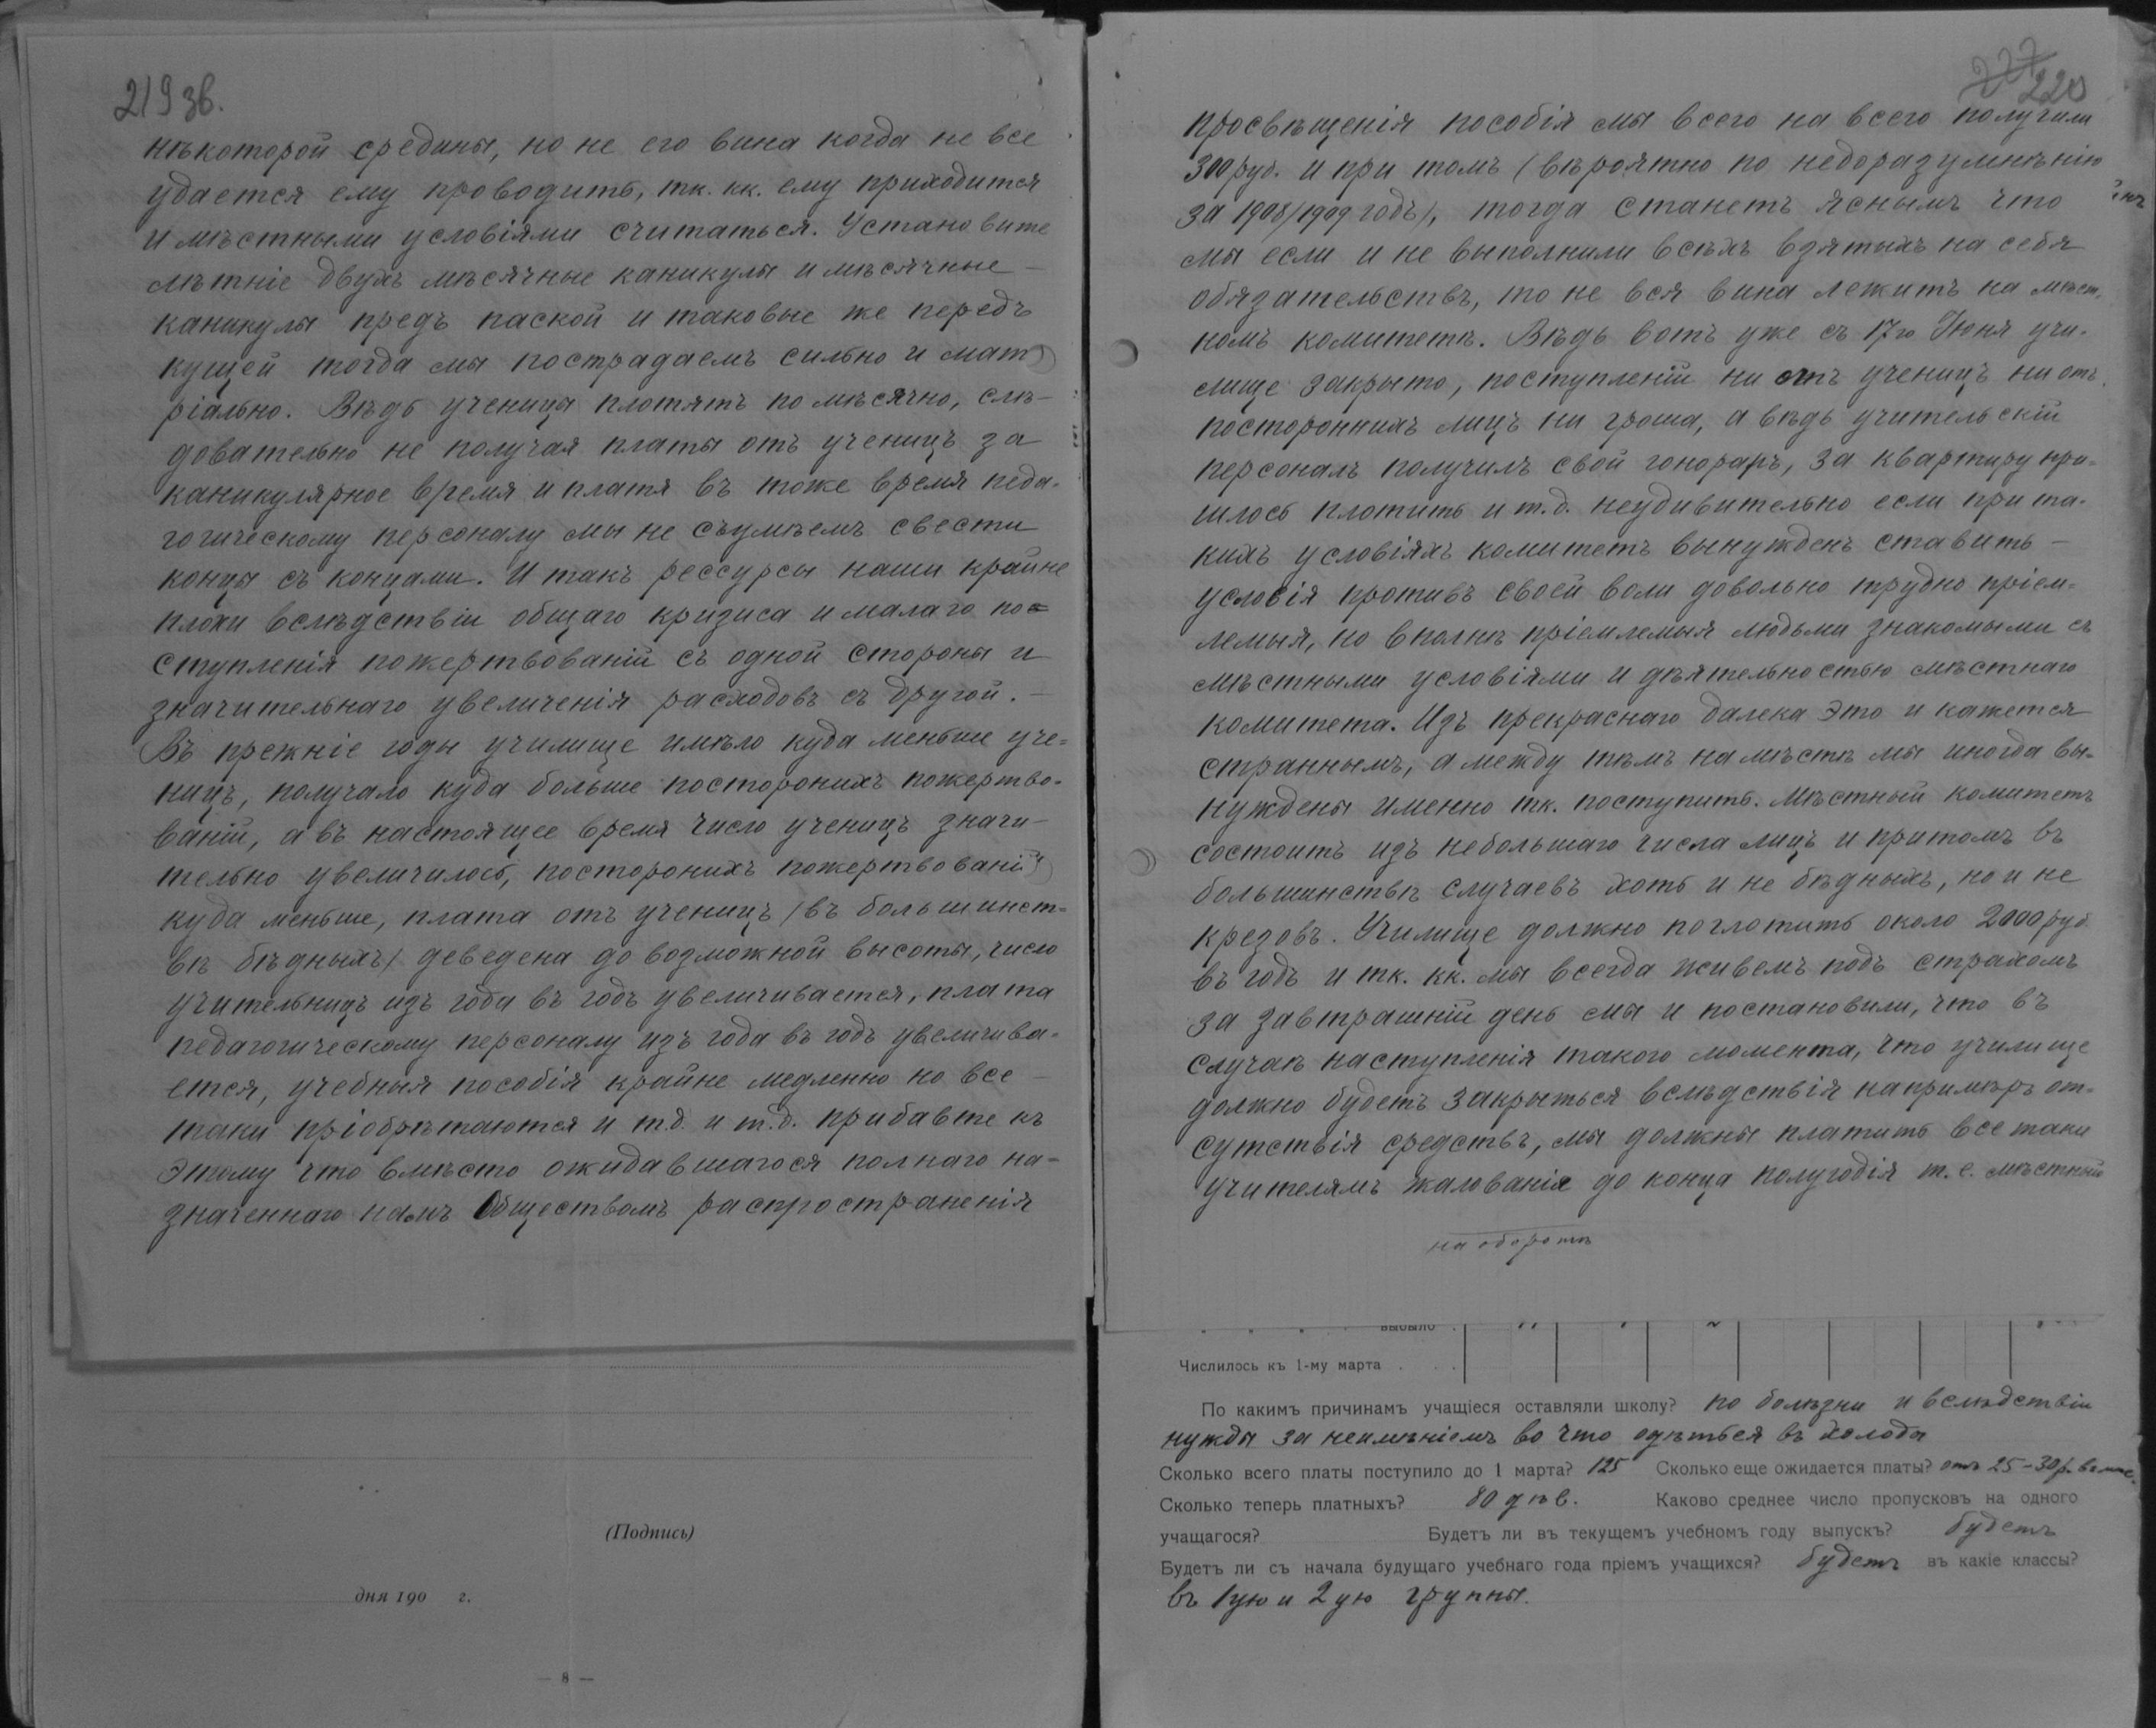 219 зв.
нѣкоторой средины, но не его вина когда не все
удается ему проводить, тк. кк. ему приходится
и мѣстными условіями считаться. Установите
лѣтніе двухъ мѣсячные каникулы и мѣсячные –
каникулы предъ паской и таковые же передъ
кущей тогда мы пострадаемъ сильно и мат
ріально. Вѣдь ученицы плотятъ по мѣсячно, слѣ-
довательно не получая платы отъ ученицъ за
каникулярное время и платя въ тоже время педа-
гогическому персоналу мы не съумѣемъ свести
концы съ концами. И такъ рессурсы наши крайне
плохи вслѣдствіи общаго кризиса и малаго по-
ступленія пожертвованій съ одной стороны и
значительнаго увеличенія расходовъ съ другой. –
Въ прежніе годы училище имѣло куда меньше уче-
ницъ, получало куда больше постороннихъ пожертво-
ваній, а въ настоящее время число ученицъ значи-
тельно увеличилось, постороннихъ пожертвованій
куда меньше, плата отъ ученицъ (въ большинст-
вѣ бѣдныхъ) деведена до возможной высоты, число
учительницъ изъ года въ годъ увеличивается, плата
педагогическому персоналу изъ года въ годъ увеличива-
ется, учебныя пособія крайне медленно но все –
таки пріобрѣтаются и т.д. и т.д. прибавте къ
этому что вмѣсто ожидавшагося полнаго на-
значеннаго намъ Обществомъ распространенія
227
220
просвѣщенія пособія мы всего на всего получили
300 руб. и при томъ (вѣроятно по недоразумѣнію
за 1908/1909 годъ), тогда станетъ яснымъ что
мы если и не выполнили всѣхъ взятыхъ на себя
обязательствъ, то не вся вина лежитъ на мѣст-
номъ комитетѣ. Вѣдь вотъ уже съ 17го Іюня учи-
лище закрыто, поступленій ни отъ ученицъ ни отъ
постороннихъ лицъ ни гроша, а вѣдь учительскій
персоналъ получилъ свой гонораръ, за квартиру при-
шлось плотить и т.д. неудивительно если при та-
кихъ условіяхъ комитетъ вынужденъ ставить –
условія противъ своей воли довольно трудно пріем-
лемыя, но вполнѣ пріемлемыя людьми знакомыми съ
мѣстными условіями и дѣятельностью мѣстнаго
комитета. Изъ прекраснаго далека это и кажется
страннымъ, а между тѣмъ на мѣстѣ мы иногда вы-
нуждены именно тк. поступить. Мѣстный комитетъ
состоитъ изъ небольшаго числа лицъ и притомъ въ
большинствѣ случаевъ хоть и не бѣдныхъ, но и не
крезовъ. Училище должно поглотить около 2000 руб.
въ годъ и тк. кк. мы всегда живемъ подъ страхомъ
за завтрашній день мы и постановили, что въ
случаѣ наступленія такого момента, что училище
должно будетъ закрыться вслѣдствія напримѣръ от-
сутствія средствъ, мы должны платить все таки
учителямъ жалованіе до конца полугодія т.е. мѣстный
на оборотѣ
(Подпись)
дня 190 г.
— 8 —
выбыло
Числилось къ 1-му марта
По какимъ причинамъ учащіеся оставляли школу? по болѣзни и вслѣдствіи
нужды за неимѣніемъ во что одѣться въ холода
Сколько всего платы поступило до 1 марта? 125 Сколько еще ожидается платы? отъ 25-30 р.
Сколько теперь платныхъ? 80 дѣв. Каково среднее число пропусковъ на одного
учащагося? Будетъ ли въ текущемъ учебномъ году выпускъ? будетъ
Будетъ ли съ начала будущаго учебнаго года пріемъ учащихся? будетъ въ какіе классы?
въ 1ую и 2ую группы.